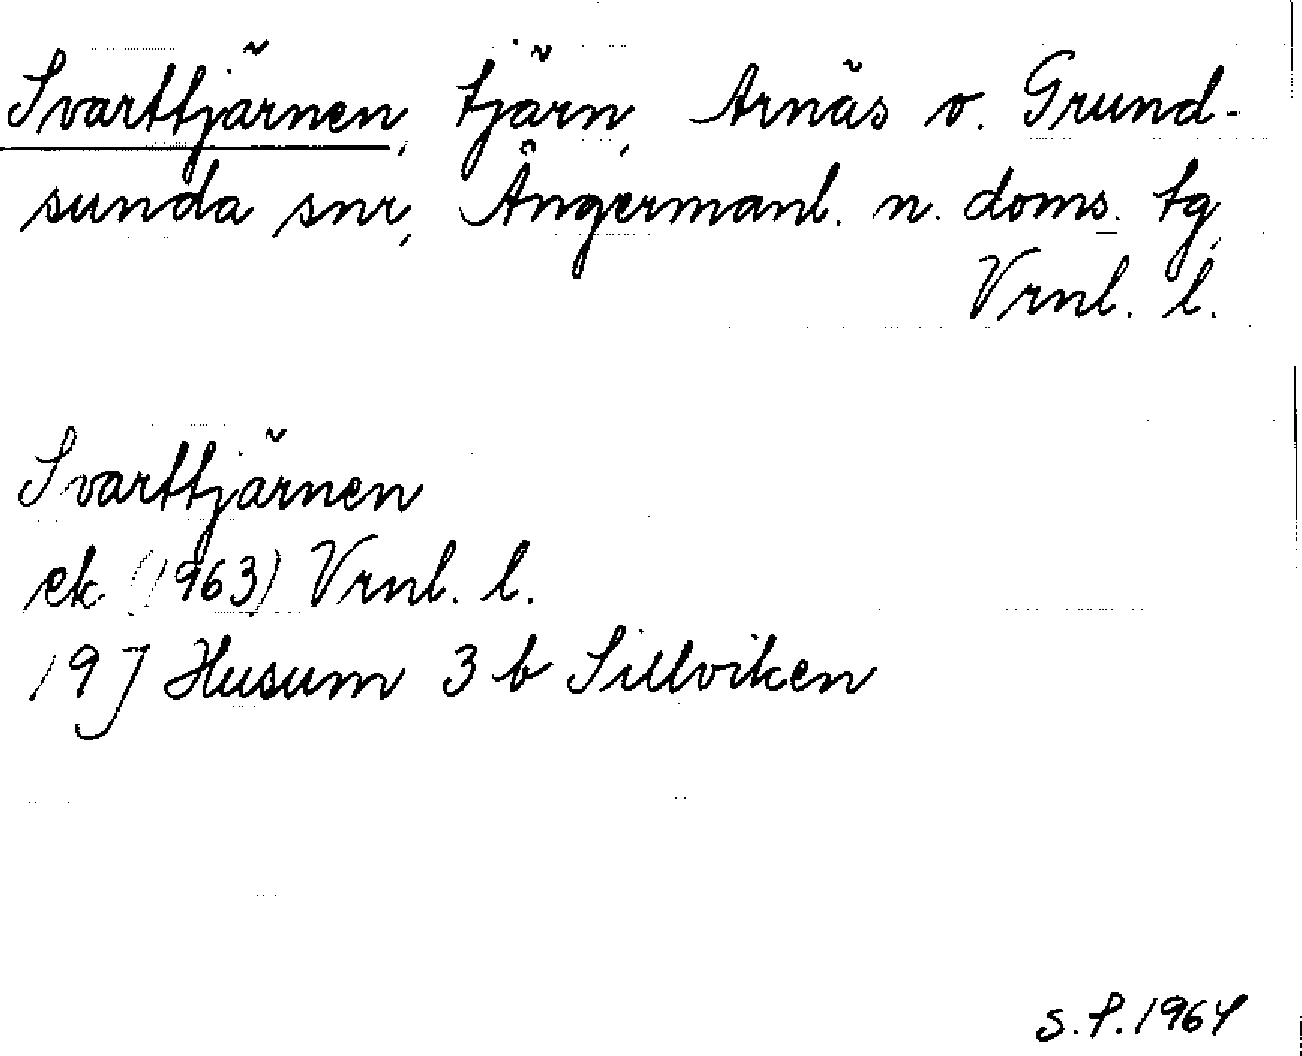 Svarttjärnen, tjärn, Arnäs o. Grund-
sunda snr, Ångermanl. n. doms. tg,
Vrnl. l.
Svarttjärnen
ek (1963) Vrnl. l.
19J Husum 3 b Sillviken
S.P. 1964